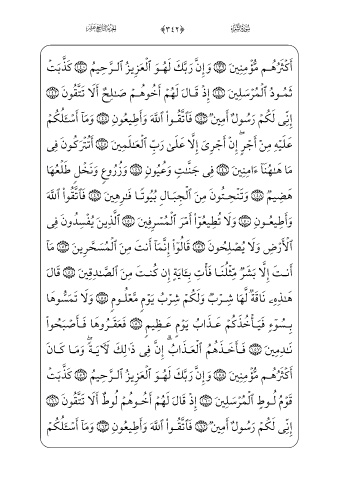 سُورَةُ الشُّعَرَاءِ ﴿٣٤٢﴾ الجزء التاسع عشر
أَكْثَرُهُم مُّؤْمِنِينَ وَإِنَّ رَبَّكَ لَهُوَ ٱلْعَزِيزُ ٱلرَّحِيمُ كَذَّبَتْ
ثَمُودُ ٱلْمُرْسَلِينَ إِذْ قَالَ لَهُمْ أَخُوهُمْ صَٰلِحٌ أَلَا تَتَّقُونَ
إِنِّى لَكُمْ رَسُولٌ أَمِينٌ فَٱتَّقُوا۟ ٱللَّهَ وَأَطِيعُونِ وَمَآ أَسْـَٔلُكُمْ
عَلَيْهِ مِنْ أَجْرٍ ۖ إِنْ أَجْرِىَ إِلَّا عَلَىٰ رَبِّ ٱلْعَٰلَمِينَ أَتُتْرَكُونَ فِى
مَا هَٰهُنَآ ءَامِنِينَ فِى جَنَّٰتٍ وَعُيُونٍ وَزُرُوعٍ وَنَخْلٍ طَلْعُهَا
هَضِيمٌ وَتَنْحِتُونَ مِنَ ٱلْجِبَالِ بُيُوتًا فَٰرِهِينَ فَٱتَّقُوا۟ ٱللَّهَ
وَأَطِيعُونِ وَلَا تُطِيعُوٓا۟ أَمْرَ ٱلْمُسْرِفِينَ ٱلَّذِينَ يُفْسِدُونَ فِى
ٱلْأَرْضِ وَلَا يُصْلِحُونَ قَالُوٓا۟ إِنَّمَآ أَنتَ مِنَ ٱلْمُسَحَّرِينَ مَآ
أَنتَ إِلَّا بَشَرٌ مِّثْلُنَا فَأْتِ بِـَٔايَةٍ إِن كُنتَ مِنَ ٱلصَّٰدِقِينَ قَالَ
هَٰذِهِۦ نَاقَةٌ لَّهَا شِرْبٌ وَلَكُمْ شِرْبُ يَوْمٍ مَّعْلُومٍ وَلَا تَمَسُّوهَا
بِسُوٓءٍ فَيَأْخُذَكُمْ عَذَابُ يَوْمٍ عَظِيمٍ فَعَقَرُوهَا فَأَصْبَحُوا۟
نَٰدِمِينَ فَأَخَذَهُمُ ٱلْعَذَابُ ۗ إِنَّ فِى ذَٰلِكَ لَـَٔايَةً ۖ وَمَا كَانَ
أَكْثَرُهُم مُّؤْمِنِينَ وَإِنَّ رَبَّكَ لَهُوَ ٱلْعَزِيزُ ٱلرَّحِيمُ كَذَّبَتْ
قَوْمُ لُوطٍ ٱلْمُرْسَلِينَ إِذْ قَالَ لَهُمْ أَخُوهُمْ لُوطٌ أَلَا تَتَّقُونَ
إِنِّى لَكُمْ رَسُولٌ أَمِينٌ فَٱتَّقُوا۟ ٱللَّهَ وَأَطِيعُونِ وَمَآ أَسْـَٔلُكُمْ